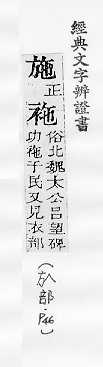 經典文字辨證書
施正
䄬俗北魏太公呂望碑
功䄬于民又見衣部
(㫃部·P46)